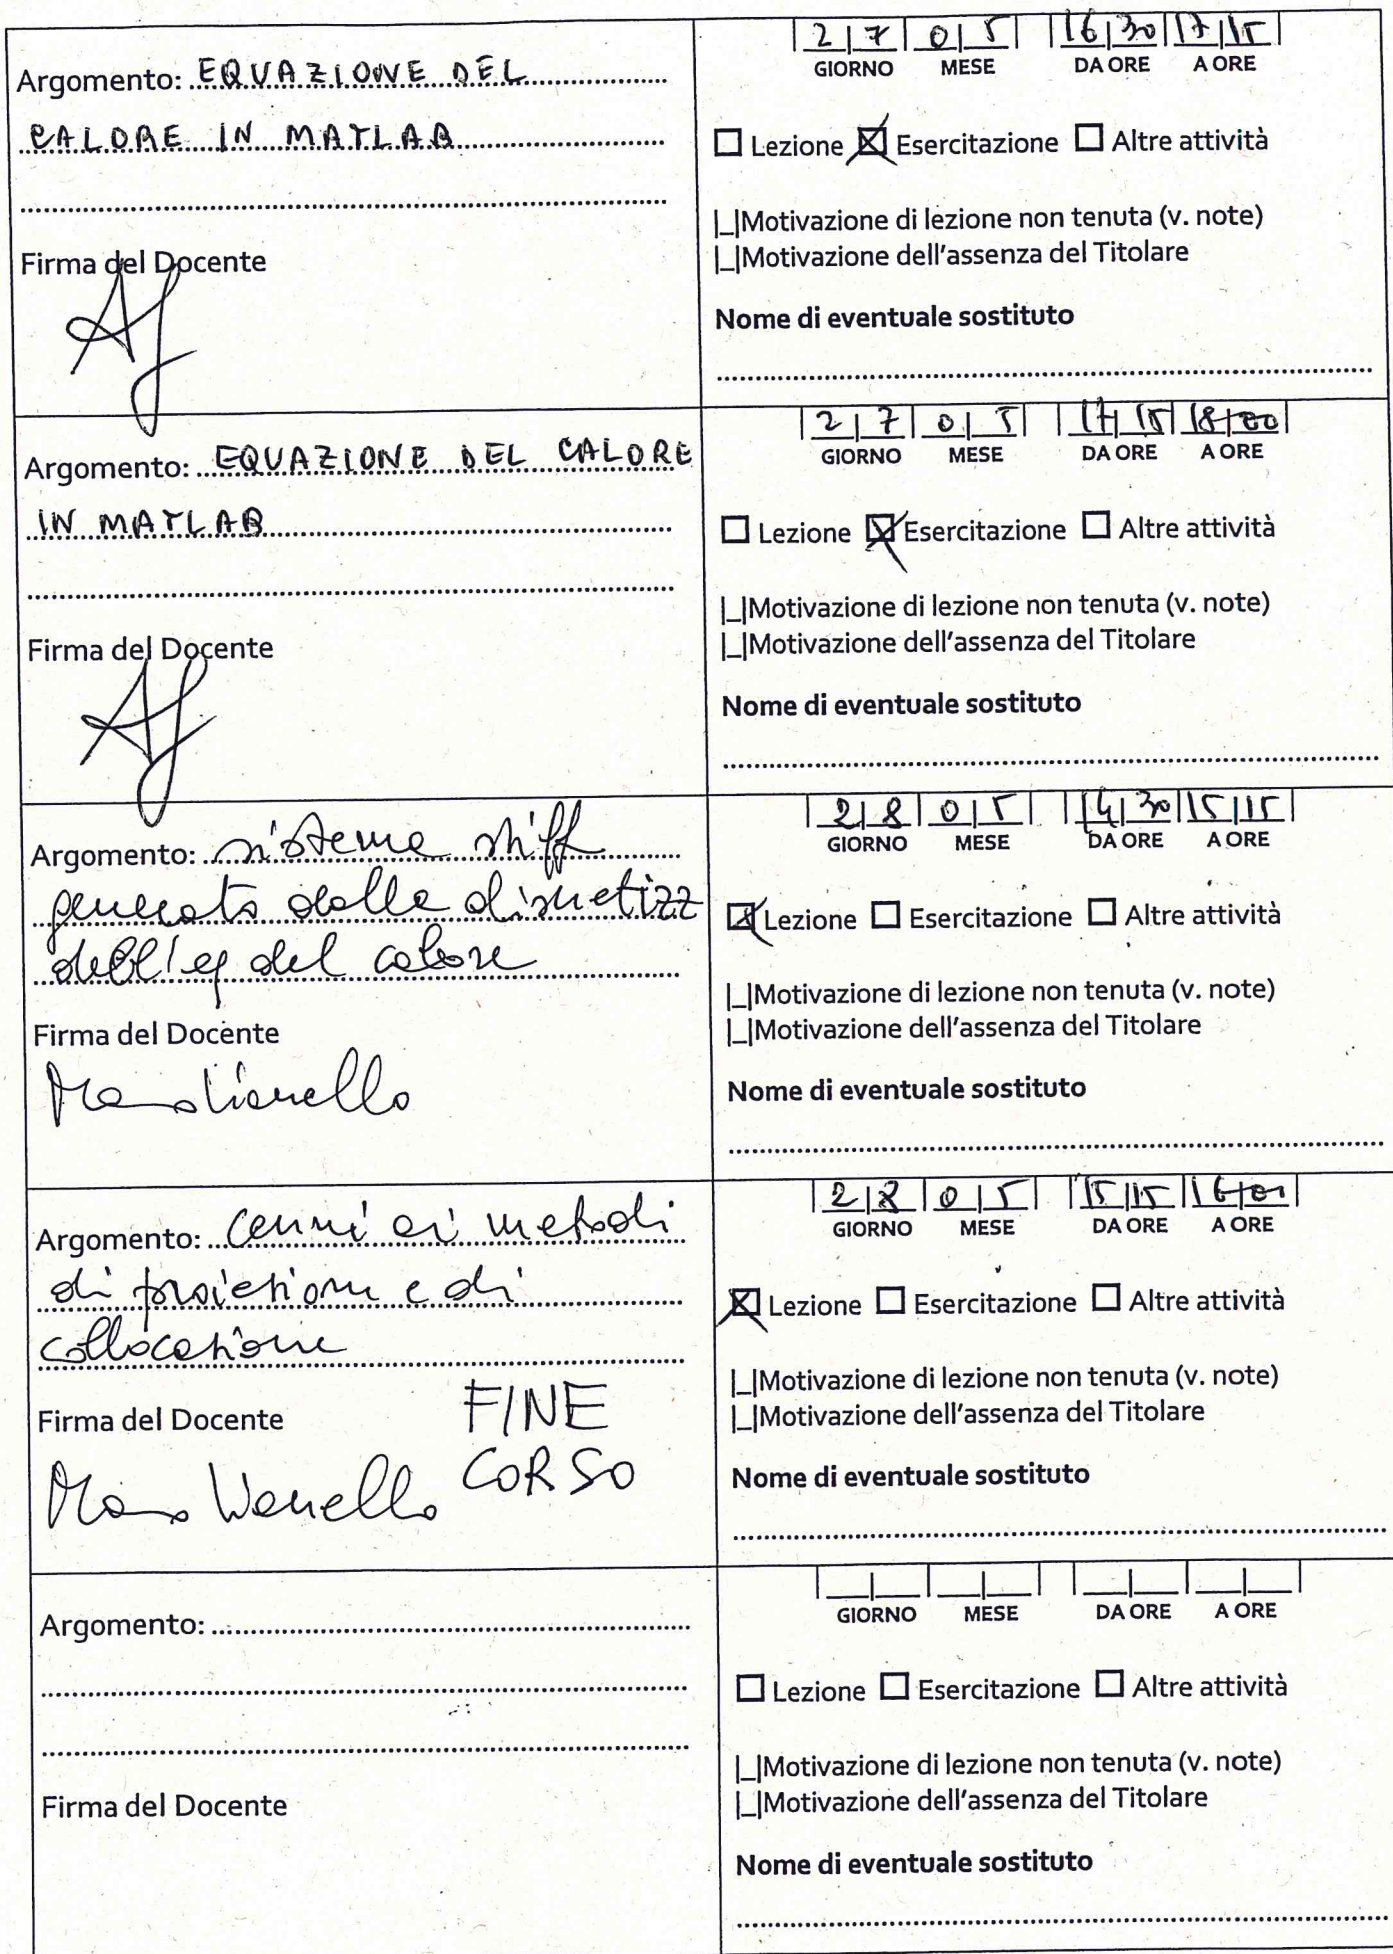 Argomento: EQUAZIONE DEL
CALORE IN MATLAB
Firma del Docente
2 7 0 5 16 30 17 15
GIORNO MESE DA ORE A ORE
☐ Lezione ☒ Esercitazione ☐ Altre attività
|_|Motivazione di lezione non tenuta (v. note)
|_|Motivazione dell'assenza del Titolare
Nome di eventuale sostituto
Argomento: EQUAZIONE DEL CALORE
IN MATLAB
Firma del Docente
2 7 0 5 17 15 18 00
GIORNO MESE DA ORE A ORE
☐ Lezione ☒ Esercitazione ☐ Altre attività
|_|Motivazione di lezione non tenuta (v. note)
|_|Motivazione dell'assenza del Titolare
Nome di eventuale sostituto
Argomento: sistema stiff
generato dalla discretizz
dell'eq del calore
Firma del Docente
2 8 0 5 14 30 15 15
GIORNO MESE DA ORE A ORE
☒ Lezione ☐ Esercitazione ☐ Altre attività
|_|Motivazione di lezione non tenuta (v. note)
|_|Motivazione dell'assenza del Titolare
Nome di eventuale sostituto
Argomento: Cenni ai metodi
di proiezione e di
collocazione
Firma del Docente
FINE
CORSO
2 8 0 5 15 15 16 00
GIORNO MESE DA ORE A ORE
☒ Lezione ☐ Esercitazione ☐ Altre attività
|_|Motivazione di lezione non tenuta (v. note)
|_|Motivazione dell'assenza del Titolare
Nome di eventuale sostituto
Argomento:
Firma del Docente
GIORNO MESE DA ORE A ORE
☐ Lezione ☐ Esercitazione ☐ Altre attività
|_|Motivazione di lezione non tenuta (v. note)
|_|Motivazione dell'assenza del Titolare
Nome di eventuale sostituto